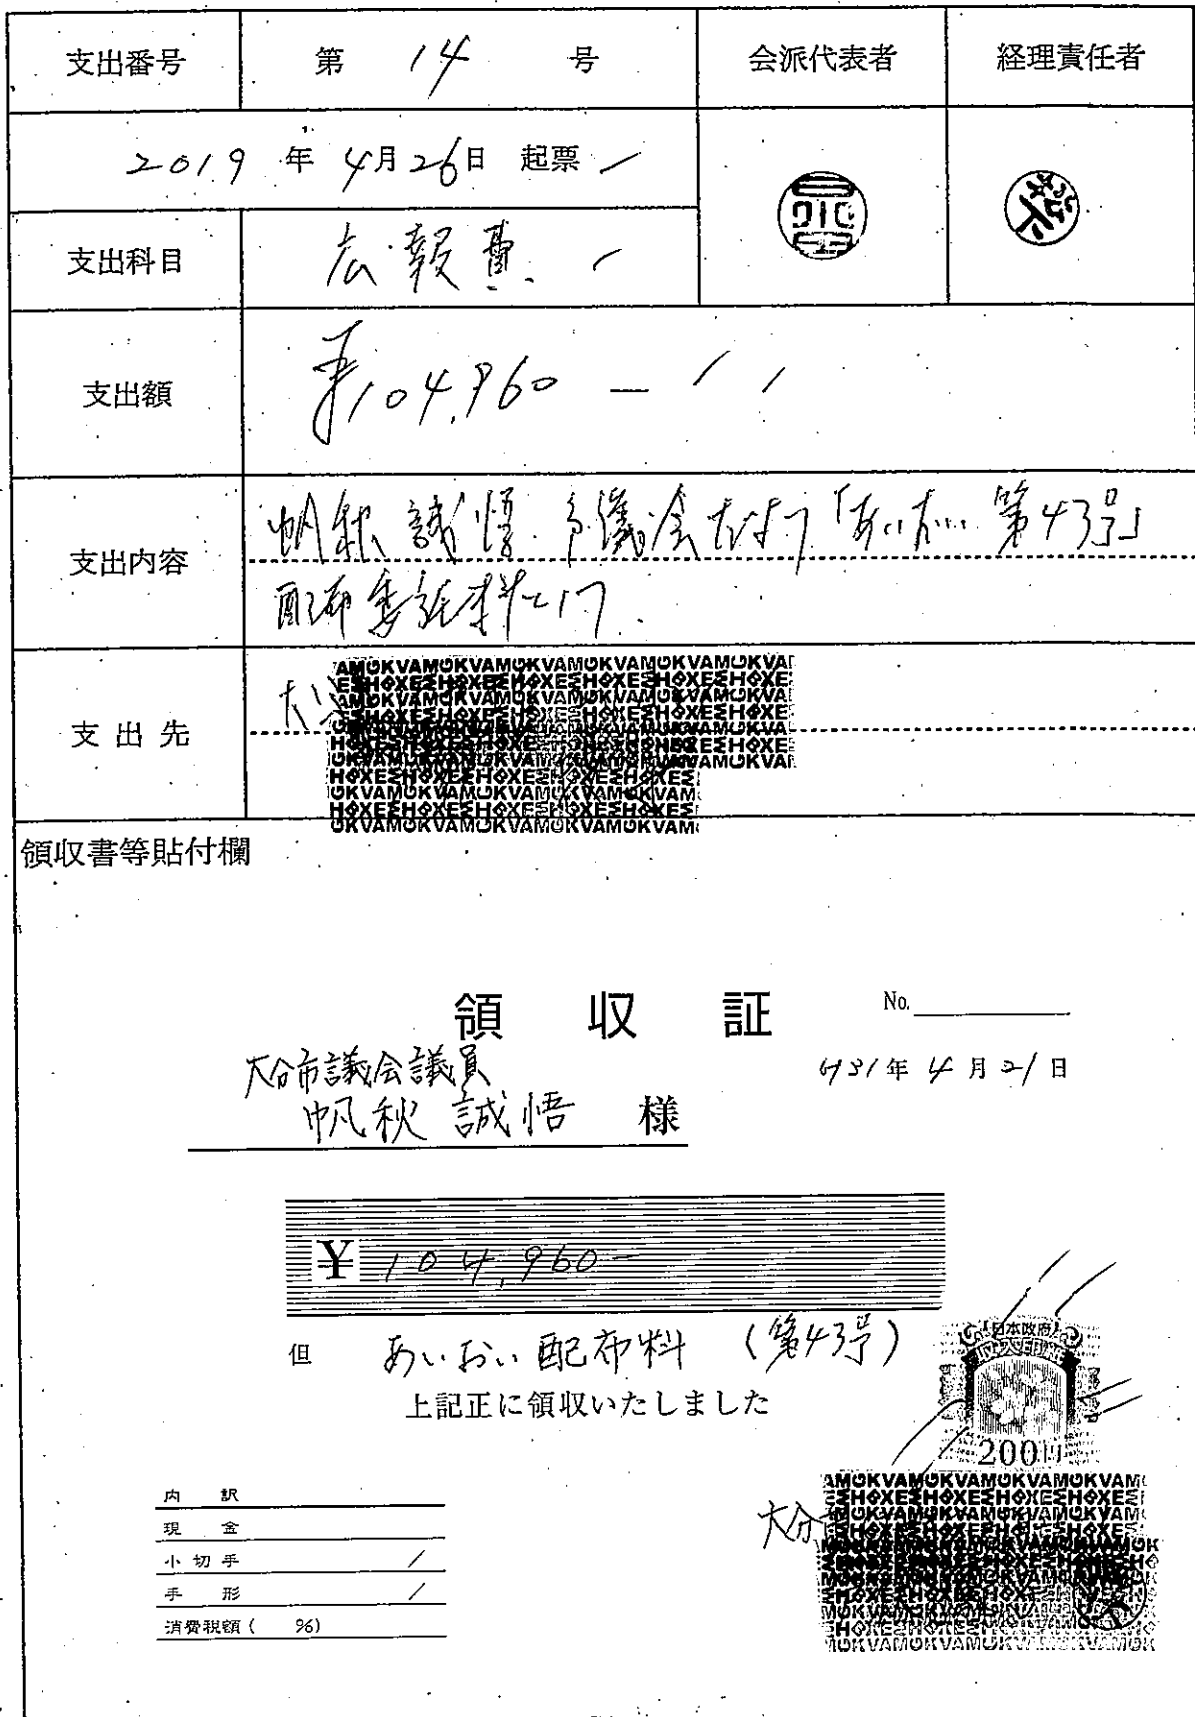 支出番号 第 14 号 会派代表者 経理責任者
2019 年 4月26日 起票
支出科目 広報費
支出額 ¥104,960 —
支出内容 帆秋誠悟 市議会だより「あいおい 第43号」
配布委託料として
支出先 大分
領収書等貼付欄
領収証 No.
H31年 4月21日
大分市議会議員
帆秋 誠悟 様
¥ 104,960-
但 あいおい配布料 (第43号)
上記正に領収いたしました
日本政府
収入印紙
200円
内訳
現金
小切手 /
手形 /
消費税額 ( %)
大分